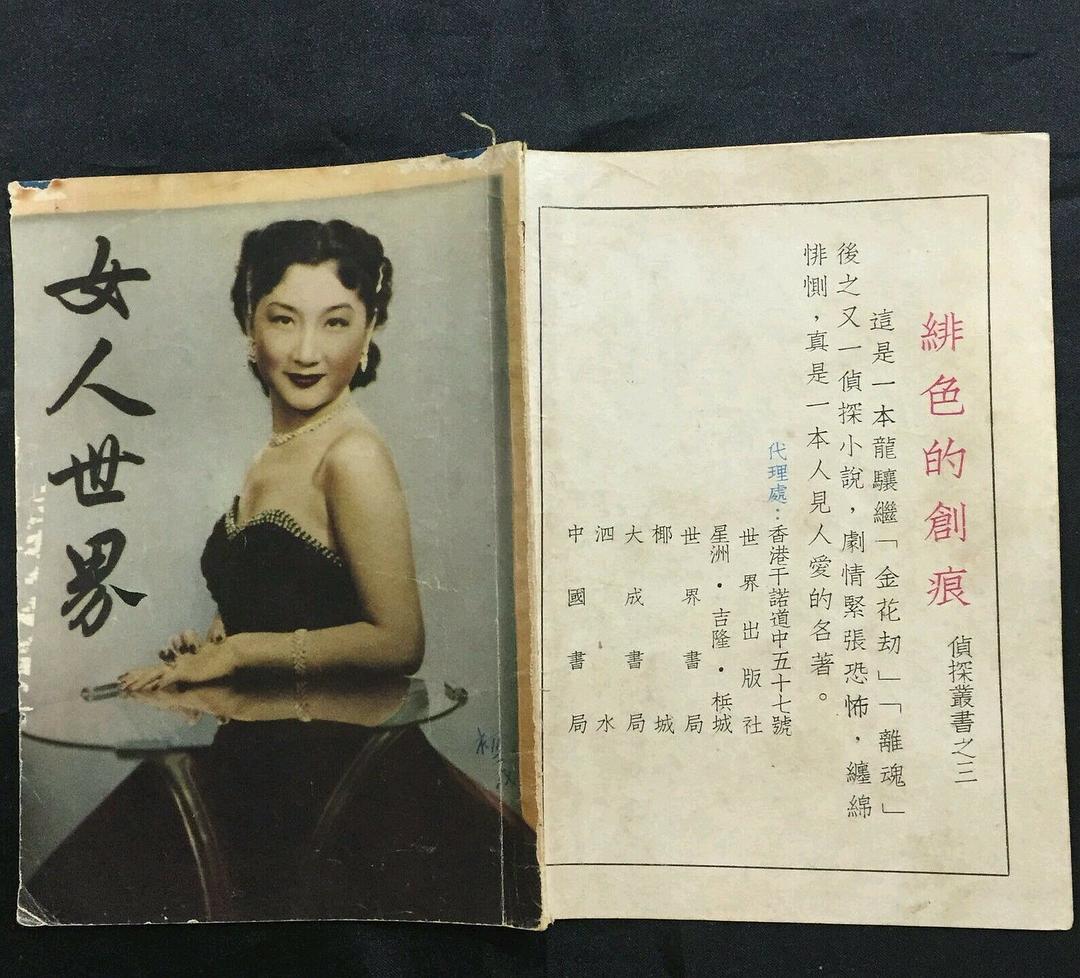 女人世界
緋色的創痕
偵探叢書之三
這是一本龍驤繼「金花刧」「離魂」
後之又一偵探小說，劇情緊張恐怖，纏綿
悱惻，真是一本人見人愛的名著。
代理處：香港干諾道中五十七號
世界出版社
星洲·吉隆·梹城
世界書局
椰城
大成書局
泗水
中國書局